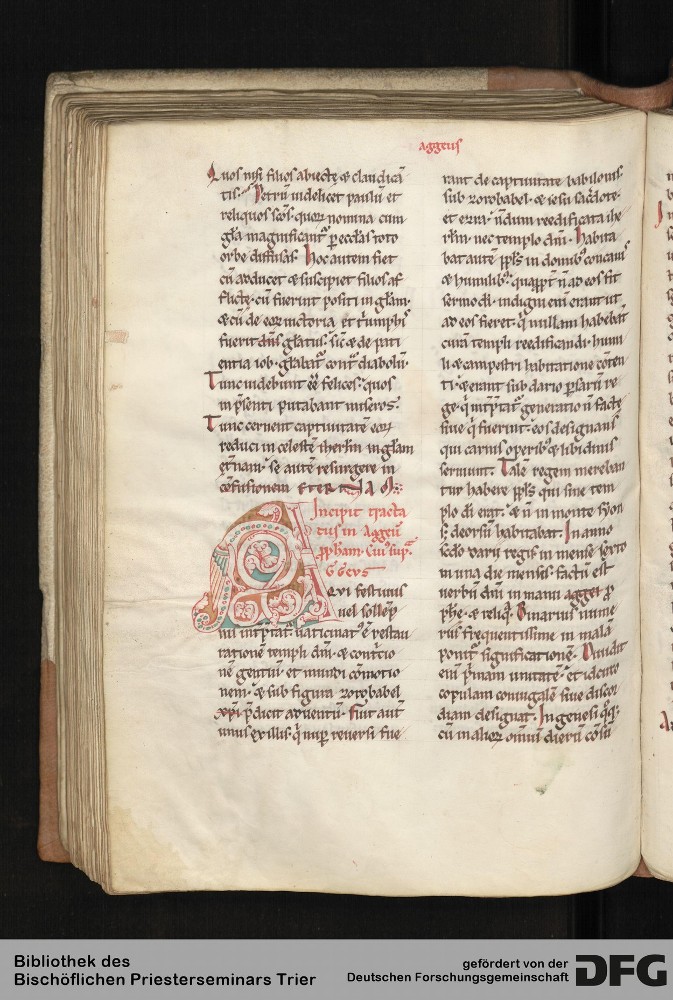 Aggeus
Quos nisi filios abiectę & claudicā
tis. Petrū uidelicet paulū et
reliquos sc̄os. quor nomina cum
gl̄a magnificant᷑ p eccl̄as toto
orbe diffusas. Hoc autem fiet
cū adducet & suscipiet filios af
flictę. cū fuerint positi in gl̄am.
& cū de eor uictoria et triumphis
fuerit dn̄s gl̄atus. sic̄ & de pati
entia iob. gl̄abat᷑ cont᷑ diabolū.
Tunc uidebunt eē felices. quos
in p̄senti putabant miseros.
Tunc cernent captiuitatē eor
reduci in celestē iherl̄m in gl̄am
et̄nam. se autē resurgere in
cōfusionem ETERNAM.
Incipit tracta
tus in Aggeū
pph̄am. Cui᷒ sup᷑
GGEVS
Qui festiuus
uel sollēp
nis int̄ptat᷑ uaticinat᷒ ē restau
rationē templi dn̄i. &
nē gentiū et mundi cōmotio
nem. & sub figura zorobabel
xp̄i p̄dicit aduentū. Fuit aut̄
unus ex illis. q̇ nup reuersi fue
rant de captiuitate babilonis.
sub zorobabel. & iesu sac̄dote.
et ezra. ndum reedificata ihe
rl̄m. nec templo dn̄i. Habita
bat autē ppl̄s in domib᷒ concauis
& humilib᷒. quappt̄ n̄ ad eos fit
sermo di. indigni eni erant ut
ad eos fieret. q̇ nullam habebāt
curā templi reedificandi. humi
li & campestri habitatione cōten
ti. & erant sub dario psarū re
ge. q̇ int̄ptat᷑ generatio n̄ facte
siue q̇ fuerint. eos designans
qui carnis operib᷒ & libidinis
seruiunt. Talē regem mereban
tur habere ppl̄s qui sine tem
plo di erat. & n̄ in monte syon
s; deorsū habitabat. In anno
sc̄do darii regis in mense sexto
in una die mensis. factū est
uerbū dn̄i in manu aggei p
phe. & reliq̇. Binarius nume
rus frequentissime in malā
ponit᷑ significationē. Diuidit
eni p̄mam unitatē. et idcirco
copulam coniugalē siue discor
diam designat. In genesi q̊q;
cū melior omiū dierū cōsū
Bibliothek des
Bischöflichen Priesterseminars Trier
gefördert von der
Deutschen Forschungsgemeinschaft
DFG